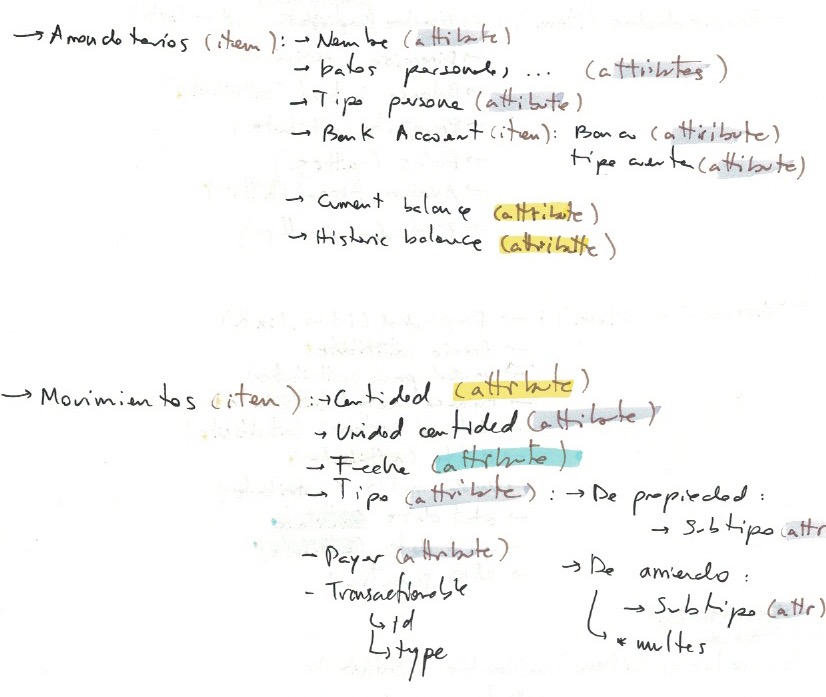 → Arrendatarios (item) : → Nombre (attibute)
→ Datos personales, ... (attributes)
→ Tipo persona (attibute)
→ Bank Account (item) : Banco (attiribute)
tipo cuenta (attibute)
→ Current balance (attribute)
→ Historic balance (attributte)
→ Movimientos (item) : → Cantidad (attrbute)
→ Unidad cantidad (attibute)
→ Fecha (attrbute)
→ Tipo (attribute) : → De propiedad :
→ Subtipo (attr
- Payer (attribute)
→ De arriendo :
- Transactionable
→ Subtipo (attr)
↳ id
↳ * multas
↳ type